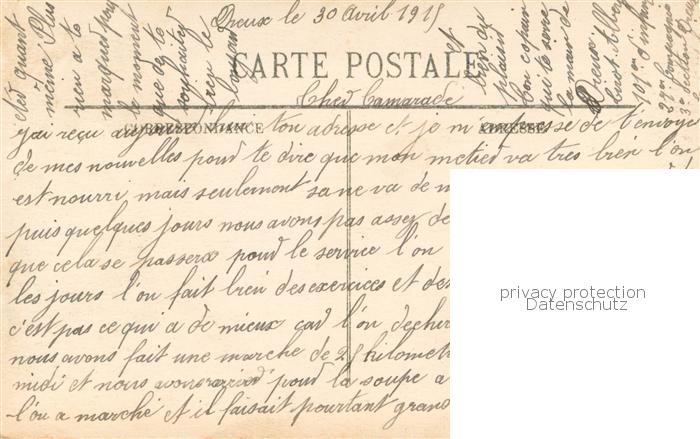 Dreux le 30 Avril 1915
CARTE POSTALE
CORRESPONDANCE
ADRESSE
Cher Camarade
j'ai reçu ton adresse et je m'empresse de t'envoyer
de mes nouvelles pour te dire que mon metier va tres bien l'on
est nourri mais seulement sa ne va de m
puis quelques jours nous avons pas assez de
que cela se passera pour le service l'on
les jours l'on fait bien des exercices et des
c'est pas ce qui a de mieux car l'on decher
nous avons fait une marche de 25 kilomet
midi et nous avons pour la soupe a
l'on a marché et il faisait pourtant grand
cher quant
même Plus
rien a te
marquer pour
le moment
que de te
souhaiter
bien le
et
bien du
plaisir
ton copain
qui te serre
la main de
Dreux
101e d'infan
29e Compagnie
privacy protection
Datenschutz